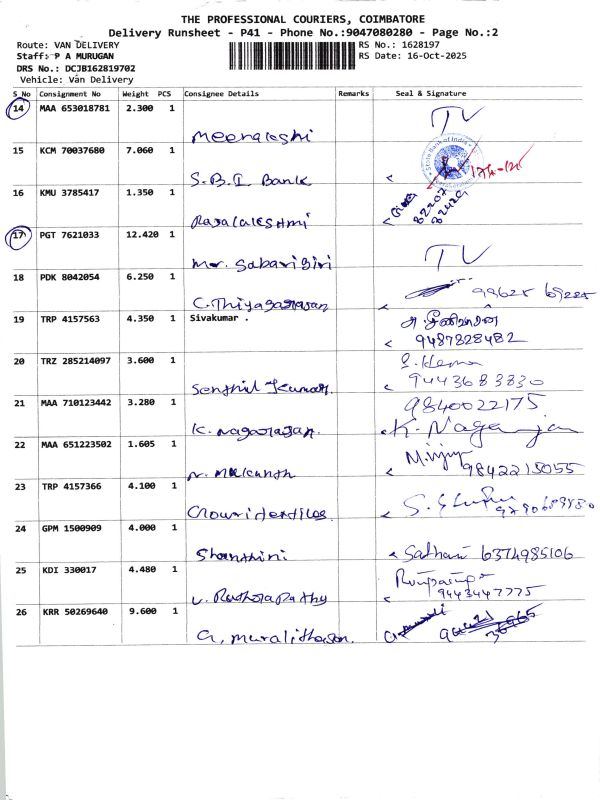 THE PROFESSIONAL COURIERS, COIMBATORE
Delivery Runsheet - P41 - Phone No.:9047080280 - Page No.:2
Route: VAN DELIVERY
RS No.: 1628197
Staff: P A MURUGAN
RS Date: 16-Oct-2025
DRS No.: DCJB1628197O2
Vehicle: Van Delivery
S_No Consignment No Weight PCS Consignee Details Remarks Seal & Signature
14 MAA 653018781 2.300 1
Meenakshi TV
15 KCM 70037680 7.060 1
State Bank of India
S.B.I Bank
16 KMU 3785417 1.350 1
Rajalakshmi
82207
82429
17 PGT 7621033 12.420 1
Mr. Sabarigiri TV
18 PDK 8042054 6.250 1
C. Thiyagarajan
19 TRP 4157563 4.350 1 Sivakumar .
9487828482
20 TRZ 285214097 3.600 1
S. Hema
Senthil Kumar 9443683830
21 MAA 710123442 3.280 1
9840022175
K. Nagarajan. K. Nagarajan
22 MAA 651223502 1.605 1
9842215055
23 TRP 4157366 4.100 1
Gowri textiles
24 GPM 1500909 4.000 1
Shanthini 6374985106
25 KDI 330017 4.480 1
9443447775
26 KRR 50269640 9.600 1
G. Muralitharan.